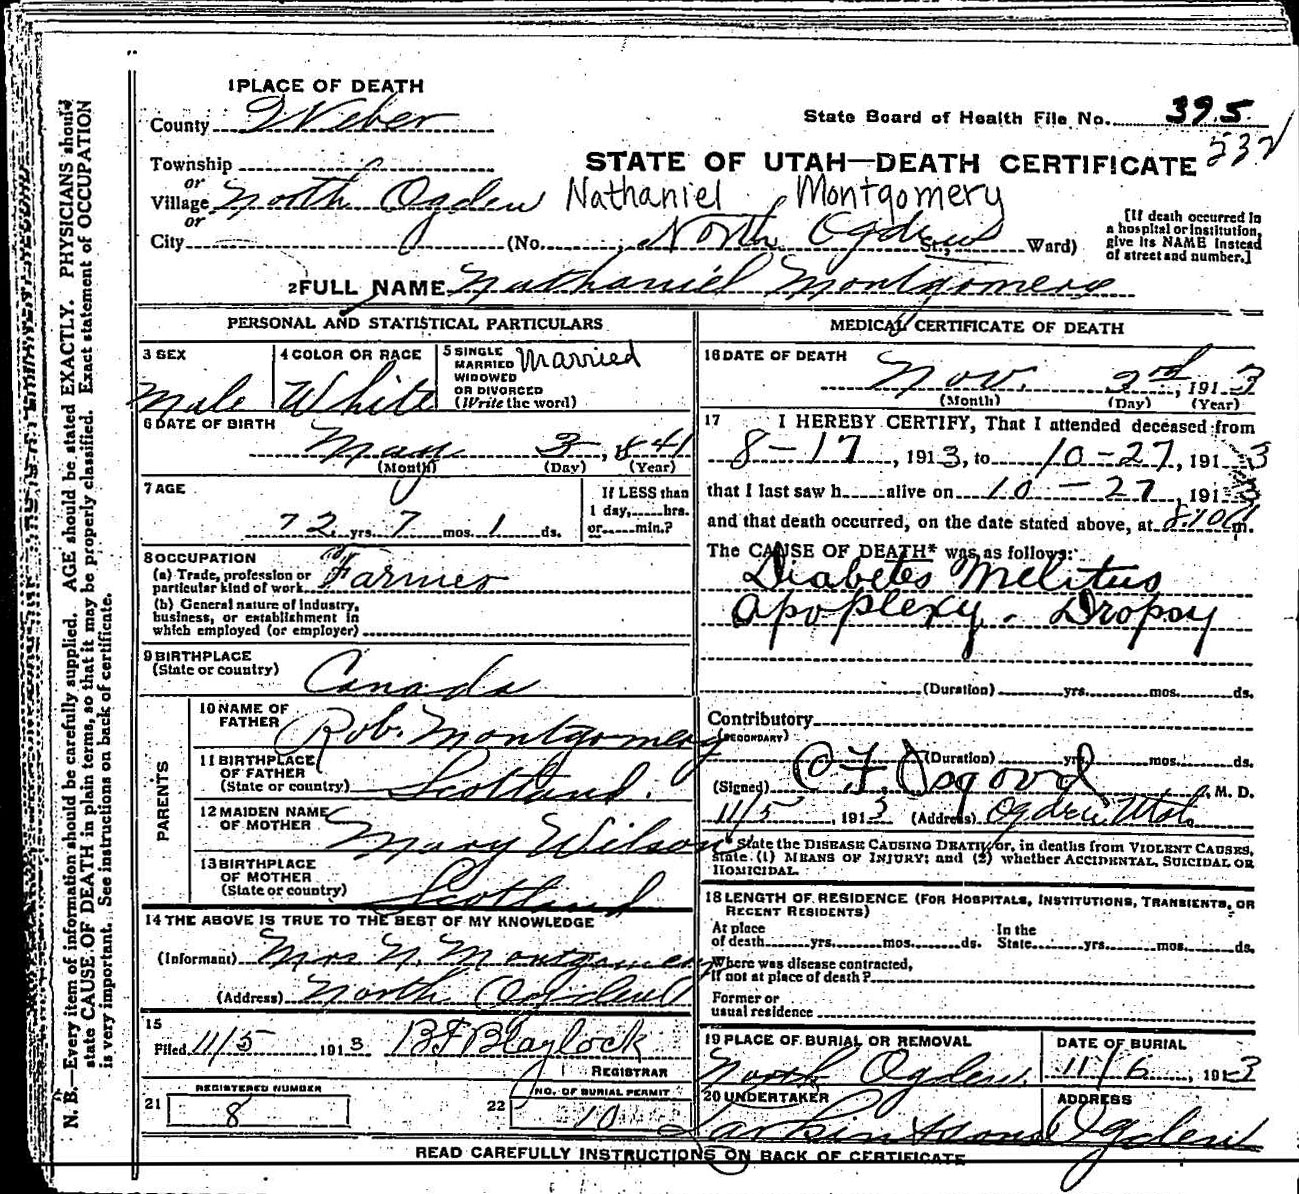 1 PLACE OF DEATH
County Weber
State Board of Health File No. 395
532
Township
or
Village North Ogden
or
City
STATE OF UTAH—DEATH CERTIFICATE
Nathaniel Montgomery
(No. ; North Ogden St.; Ward)
[If death occurred in a hospital or institution, give its NAME instead of street and number.]
2 FULL NAME Nathaniel Montgomery
PERSONAL AND STATISTICAL PARTICULARS
3 SEX
Male
4 COLOR OR RACE
White
5 SINGLE
MARRIED
WIDOWED
OR DIVORCED
(Write the word)
Married
6 DATE OF BIRTH
May 3, 1841
(Month) (Day) (Year)
7 AGE
72 yrs. 7 mos. 1 ds.
If LESS than
1 day, hrs.
or min.?
8 OCCUPATION
(a) Trade, profession or
particular kind of work Farmer
(b) General nature of Industry,
business, or establishment in
which employed (or employer)
9 BIRTHPLACE
(State or country)
Canada
PARENTS
10 NAME OF
FATHER Rob. Montgomery
11 BIRTHPLACE
OF FATHER
(State or country) Scotland.
12 MAIDEN NAME
OF MOTHER Mary Wilson
13 BIRTHPLACE
OF MOTHER
(State or country) Scotland
14 THE ABOVE IS TRUE TO THE BEST OF MY KNOWLEDGE
(Informant) Mrs N. Montgomery
(Address) North Ogden
15
Filed 11/5 1913 BF Blaylock
REGISTRAR
21 REGISTERED NUMBER
8
22 NO. OF BURIAL PERMIT
10
MEDICAL CERTIFICATE OF DEATH
16 DATE OF DEATH
Nov. 2nd, 1913
(Month) (Day) (Year)
17 I HEREBY CERTIFY, That I attended deceased from
8-17, 1913, to 10-27, 1913
that I last saw h alive on 10-27, 1913
and that death occurred, on the date stated above, at m.
The CAUSE OF DEATH* was as follows:
Diabetes Melitus
Apoplexy. Dropsy
(Duration) yrs. mos. ds.
Contributory
(SECONDARY)
(Duration) yrs. mos. ds.
(Signed) O. F. Osgood, M. D.
11/5, 1913 (Address) Ogden Utah
* State the DISEASE CAUSING DEATH, or, in deaths from VIOLENT CAUSES,
state (1) MEANS OF INJURY; and (2) whether ACCIDENTAL, SUICIDAL OR
HOMICIDAL.
18 LENGTH OF RESIDENCE (FOR HOSPITALS, INSTITUTIONS, TRANSIENTS, OR
RECENT RESIDENTS)
At place
of death yrs. mos. ds.
In the
State yrs. mos. ds.
Where was disease contracted,
if not at place of death?
Former or
usual residence
19 PLACE OF BURIAL OR REMOVAL
North Ogden
DATE OF BURIAL
11/6, 1913
20 UNDERTAKER
Larkin & Sons
ADDRESS
Ogden
READ CAREFULLY INSTRUCTIONS ON BACK OF CERTIFICATE
N. B.—Every item of information should be carefully supplied. AGE should be stated EXACTLY. PHYSICIANS should
state CAUSE OF DEATH in plain terms, so that it may be properly classified. Exact statement of OCCUPATION
is very important. See instructions on back of certificate.